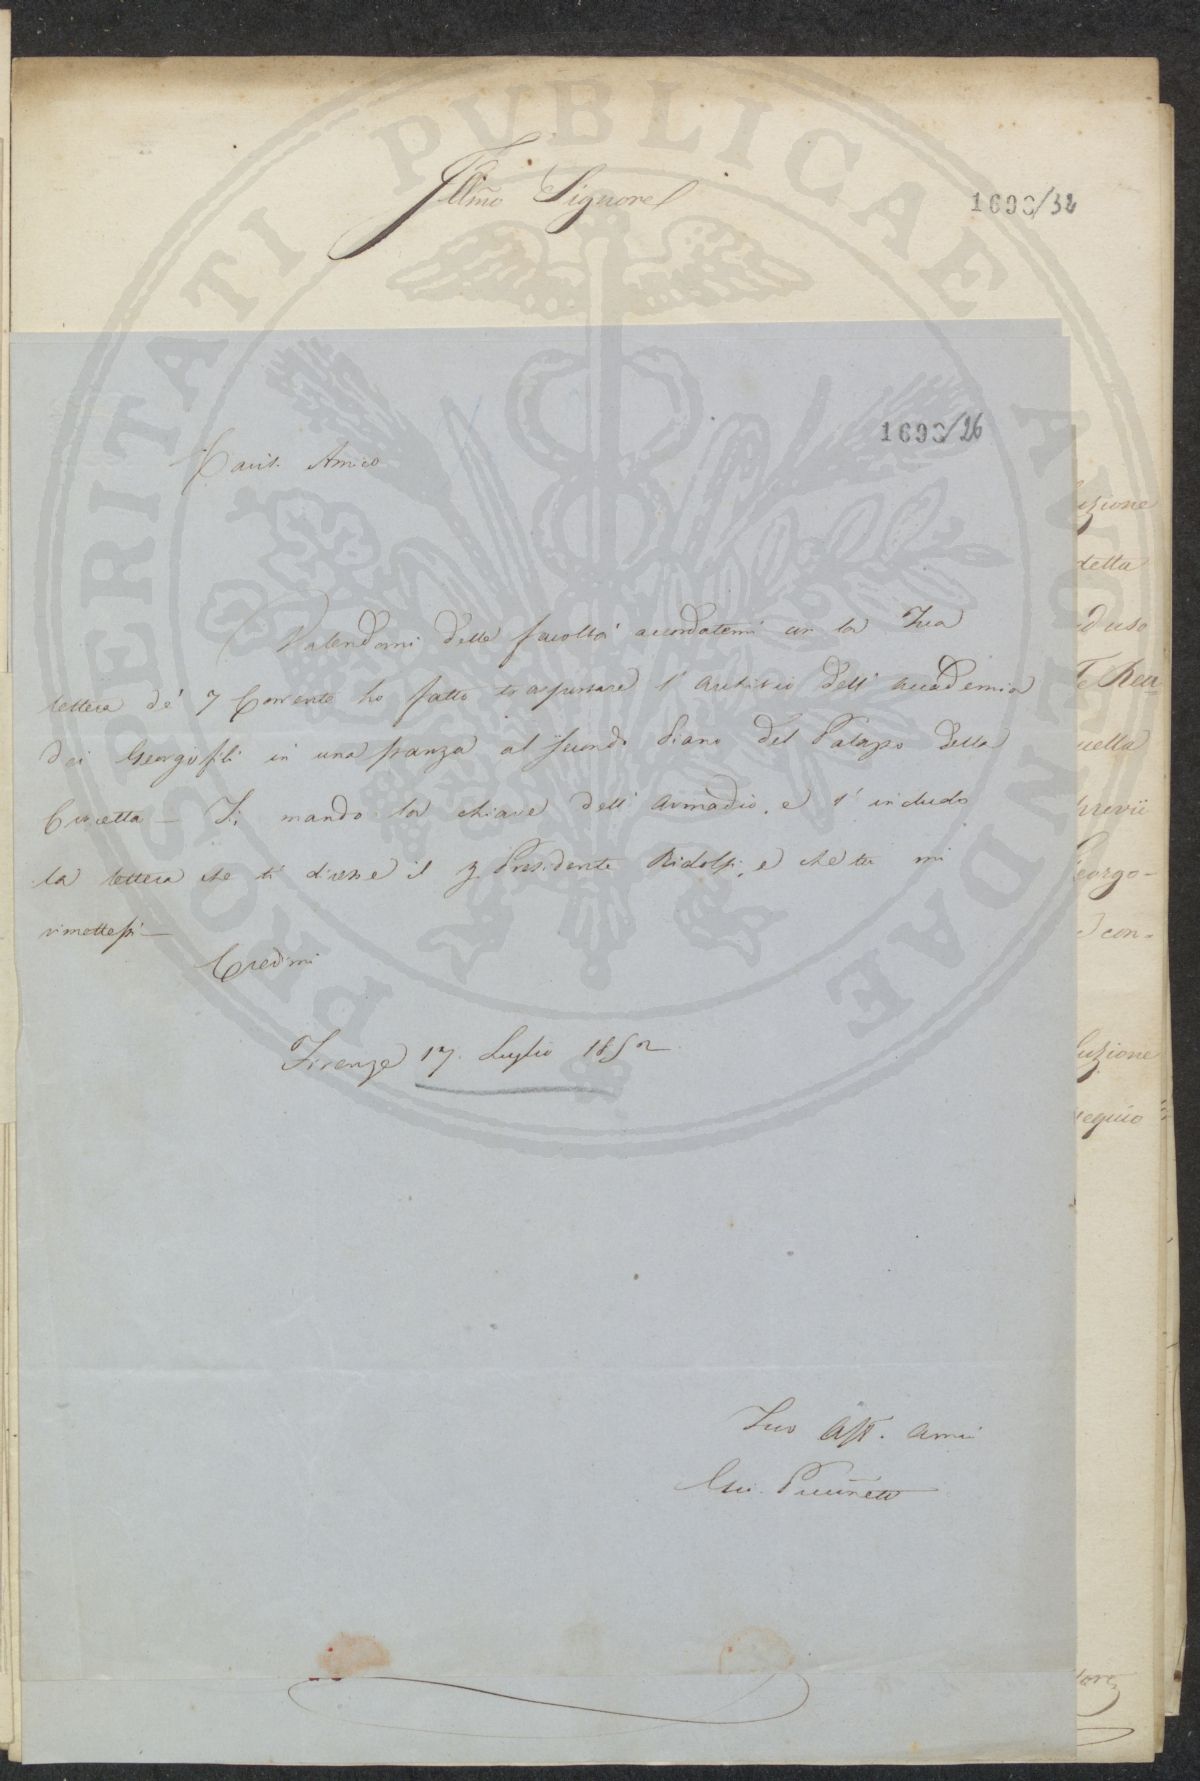 PROSPERITATI PUBLICAE AUGENDAE
Illmo Signore
1690/32
1690/26
Cariss. Amico
Valendomi delle facoltà accordatemi con la Tua
lettera de' 7 Corrente ho fatto trasportare l'archivio dell'accademia
dei Georgofili in una stanza al secondo piano del Palazzo della
Crocetta — Ti mando la chiave dell'armadio, e t'includo
la lettera che ti diresse il Presidente Ridolfi, e che tu mi
rimettesti —
Credimi
Firenze 17. Luglio 1852
Tuo Aff. amico
uzione
detta
ad uso
e Rea
uella
brevii
eorgo-
con-
luzione
sequio
tore